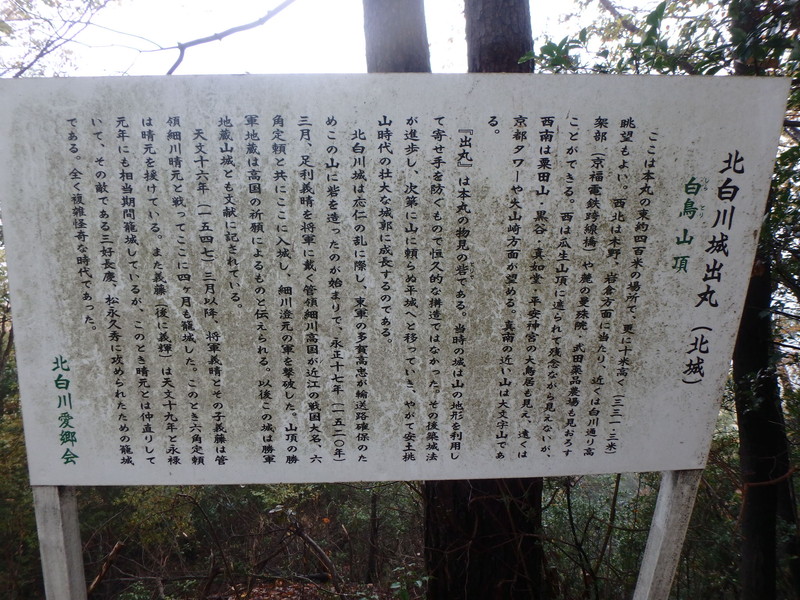 北白川城出丸（北城）
白鳥山頂
しら とり
ここは本丸の東約四百米の場所で、更に十米高く（三三一・三米）
眺望もよい。西北は木野・岩倉方面に当たり、近くは白川通り高
架部（京福電鉄跨線橋）や麓の曼殊院、武田薬品農場も見おろす
ことができる。西は瓜生山頂に遮られて残念ながら見えないが、
西南は粟田山・黒谷・真如堂・平安神宮の大鳥居も見え、遠くは
京都タワーや大山崎方面が望める。真南の近い山は大文字山であ
る。
『出丸』は本丸の物見の砦である。当時の城は山の地形を利用し
て寄せ手を防ぐもので恒久的な構造ではなかった。その後築城法
が進歩し、次第に山に頼らぬ平城へと移っていき、やがて安土桃
山時代の壮大な城郭に成長するのである。
北白川城は応仁の乱に際し、東軍の多賀高忠が輸送路確保のた
めこの山に砦を造ったのが始まりで、永正十七年（一五二〇年）
三月、足利義晴を将軍に戴く管領細川高国が近江の戦国大名、六
角定頼と共にここに入城し、細川澄元の軍を撃破した。山頂の勝
軍地蔵は高国の祈願によるものと伝えられる。以後この城は勝軍
地蔵山城とも文献に記されている。
天文十六年（一五四七）三月以降、将軍義晴とその子義藤は管
領細川晴元と戦ってここに四ヶ月も籠城した。このとき六角定頼
は晴元を援けている。また義藤（後に義輝）は天文十九年と永禄
元年にも相当期間籠城しているが、このとき晴元とは仲直りして
いて、その敵である三好長慶、松永久秀に攻められたための籠城
である。全く複雑怪奇な時代であった。
北白川愛郷会